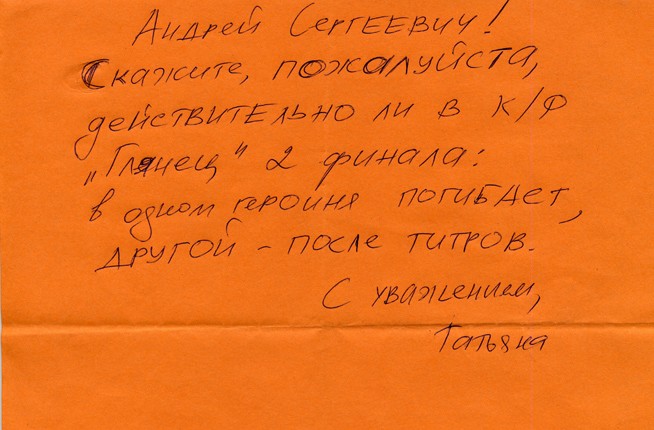 Андрей Сергеевич!
Скажите, пожалуйста,
действительно ли в к/ф
„Глянец" 2 финала:
в одном героиня погибает,
другой - после титров.
С уважением,
Татьяна